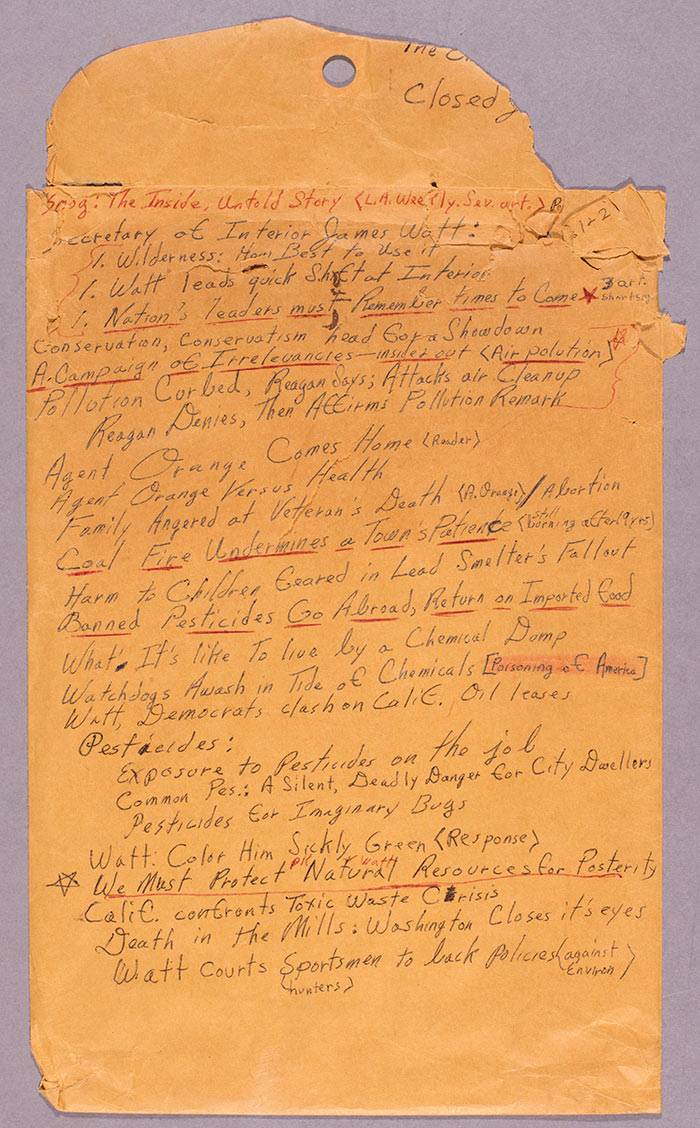 The
Closed
Smog: The Inside, Untold Story (L.A. Weekly. Sev. art.)
21+21
Secretary of Interior James Watt:
1. Wilderness: How Best to Use it
1. Watt leads quick Shift at Interior
1. Nation's leaders must Remember times to Come ★ 3 art.
Conservation, Conservatism head for a Showdown
A Campaign of Irrelevancies—insider out (Air polution) ☆
Pollution Curbed, Reagan Says; Attacks air Cleanup
Reagan Denies, Then Affirms Pollution Remark
Agent Orange Comes Home (Reader)
Agent Orange Versus Health
Family Angered at Veteran's Death (A. Orange) / Abortion
Coal Fire Undermines a Town's Patience (still burning after 19 yrs)
Harm to Children feared in Lead Smelter's Fallout
Banned Pesticides Go Abroad, Return on Imported food
What It's like To live by a Chemical Dump
Watchdogs Awash in Tide of Chemicals [Poisoning of America]
Watt, Democrats clash on Calif. Oil leases
Pesticides:
Exposure to Pesticides on the job
Common Pes.: A Silent, Deadly Danger for City Dwellers
Pesticides for Imaginary Bugs
Watt: Color Him Sickly Green (Response)
Watt
☆ We Must Protect Natural Resources for Posterity
Calif. confronts Toxic Waste Crisis
Death in the Mills: Washington Closes it's eyes
Watt Courts Sportsmen to back policies (against Environ)
(hunters)